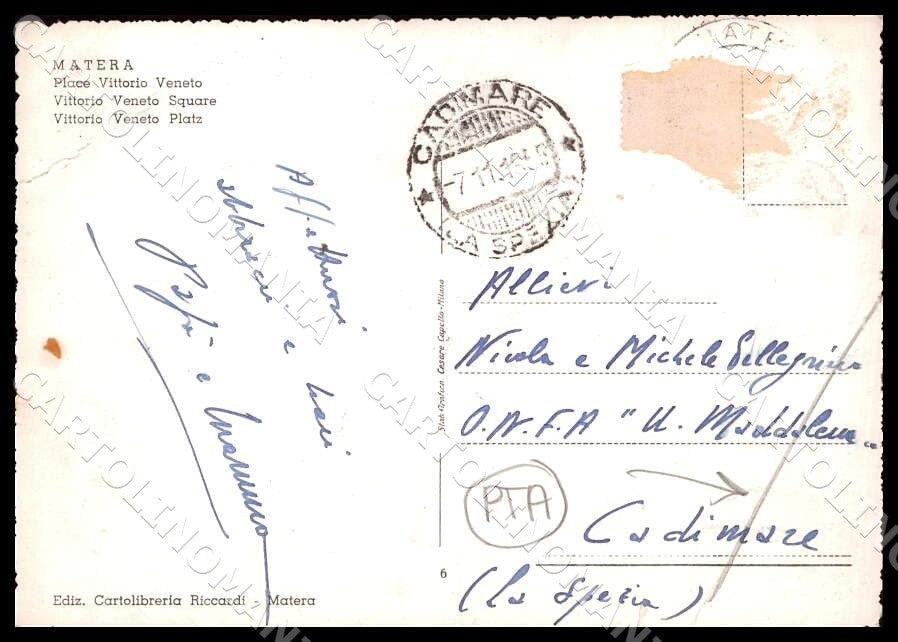 MATERA
Place Vittorio Veneto
Vittorio Veneto Square
Vittorio Veneto Platz
CADIMARE
LA SPEZIA
Affettuosi
abbracci e baci
Papà e Mamma
Stab. Grafico Cesare Capello - Milano
Allievi
Nicola e Michele Pellegrino
O.N.F.A "U. Maddalena"
PTA
Cadimare
(La Spezia)
6
Ediz. Cartolibreria Riccardi - Matera
CARTOLINOMANIA